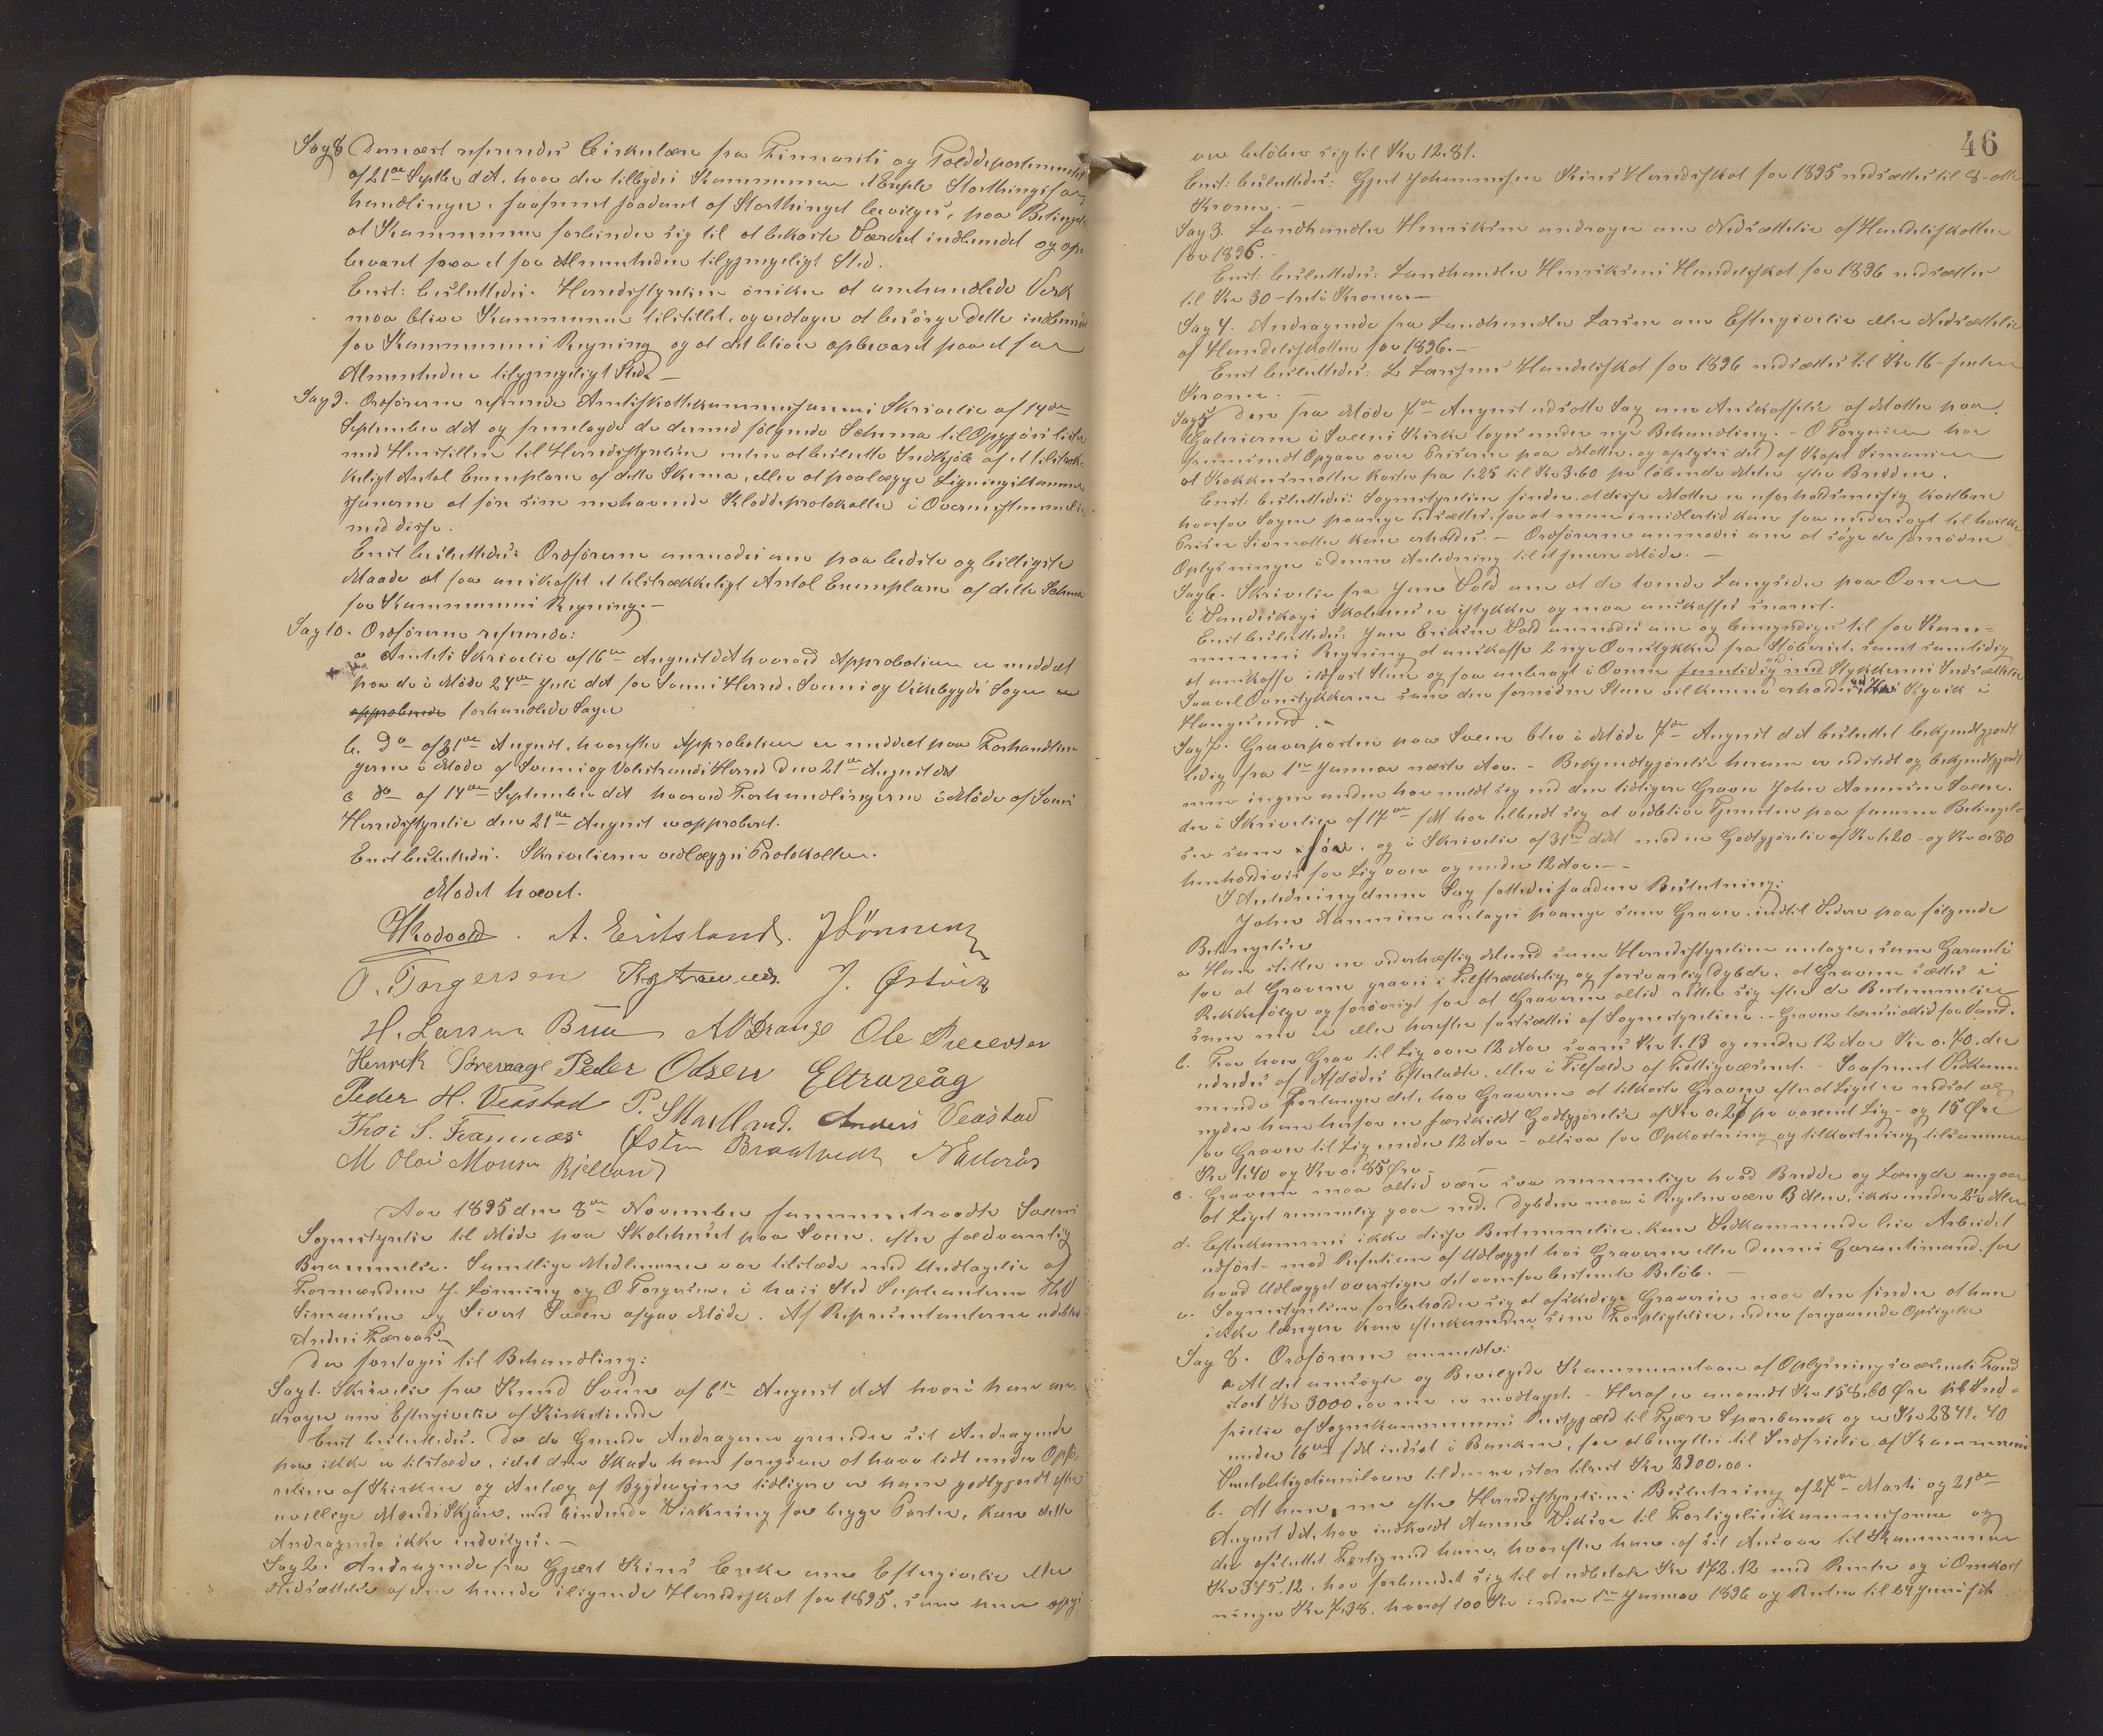 Sag 8. Dernæst refereredes Cirkulære fra Finants og Tolddepartementet
af 21de Septbr d.A. hvor der tilbydes Kommunen 1 Expl. Storthingsfor-
handlinger, saafremt saadant af Storthinget bevilges, paa Betingelse
at Kommunen forbinder sig til at bekoste Værket indbundet og op-
bevaret paa et for Almenheden tilgjængeligt Sted.
Enst: besluttedes. Herredsstyrelsen ønsker at omhandlede Verk
maa blive Kommunen tilstillet, og vedtager at besørge dette indbundet
for Kommunens Regning og at det bliver opbevaret paa et for
Almenheden tilgjængeligt Sted. —
Sag 9. Ordføreren refererede Amtsskattekommissionens Skrivelse af 14de
September d.A og fremlagde de dermed følgende Schema til Opgjørslister
med Henstillen til Herredsstyrelsen enten at beslutte Indkjøb af et tilstræk-
keligt Antal Exemplarer af dette Skema, eller at paalægge Ligningskommis-
sionerne at føre sine nuhavende Kladdeprotokoller i Overensstemmelse
med disse.
Enst besluttedes: Ordføreren anmodes om paa bedste og billigste
Maade at faa anskaffet et tilstrækkeligt Antal Exemplarer af dette Schema
for Kommunens Regning. —
Sag 10. Ordføreren refererede:
a. Amtets Skrivelse af 16de August d.A hvorved Approbation er meddelt
paa de i Møde 24de Juli d.A for Sveens Herred, Sveens og Vikebygds Sogne
approberede forhandlede Sager
b. Do af 31te August, hvorefter Approbation er meddelt paa Forhandlin-
gerne i Møde af Sveens og Valestrands Herred den 21de August d.A
c do af 14de September d.A hvorved Forhandlingerne i Møde af Sveens
Herredsstyrelse den 21de August er approberet.
Enst besluttedes. Skrivelserne vedlægges Protokollen.
Mødet hævet.
A. Eritsland. J Lønning
O. Torgersen J. Østvik
H. Larsen Bua A Drange Ole Pedersen
Henrik Peder Olsen E Straxåg
Peder H. Veastad P. S Mælland. Anders Veastad
Thoe S. Framnæs Østen Braatveit N Aaderøs
M Olai Monsen Rjelland
Aar 1895 den 8de November sammentraadte Sveens
Sogнestyrelse til Møde paa Skolehuset paa Sveen, efter foregaaende
Berammelse. Samtlige Medlemmer var tilstede med Undtagelse af
Formændene J. Lønning og O Torgersen, i hvis Sted Suplenterne Th.
Simonsen og Sivert Sveen afgav Møde. Af Repræsentanterne udeblev
Anders
Der foretoges til Behandling:
Sag 1. Skrivelse fra Knud Sveen af 6te August d.A hvori han an-
drager om Eftergivelse af Kirketiende
Enst besluttedes. Da de Grunde Andrageren grunder sit Andragende
paa ikke er tilstede, idet den Skade han foregiver at have lidt under Opfø-
relsen af Kirken og Anlæg af Bygdeveien tidligere er ham godtgjort efter
uvillige Mænds Skjøn, med bindende Virkning for begge Parter, kan dette
Andragende ikke indvilges. —
Sag 2. Andragende fra Gjert Steins Enke om Eftergivelse eller
Nedsættelse af den hende ilignede Herredsskat for 1895, som hun opgi-
46
ver beløber sig til Kr 12.81.
Enst: besluttedes: Gjert Johannessen Steins Herredsskat for 1895 nedsættes til 8 - otte
Kroner. —
Sag 3. Landhandler Henriksen andrager om Nedsættelse af Handelsskatten
for 1896. -
Enst: besluttedes: Landhandler Henriksens Handelsskat for 1896 nedsættes
til Kr 30 - treti Kroner. —
Sag 4. Andragende fra Landhandler Larsen om Eftergivelse eller Nedsættelse
af Handelsskatten for 1896. —
Enst besluttedes: L Larsens Handelsskat for 1896 nedsættes til Kr 16 - sexten
Kroner. —
Sag 5 Den fra Møde 7de August udsatte Sag om Anskaffelse af Matter paa
Galerierne i Sveens Kirke toges under ny Behandling. - O Torgersen har
fremsendt Opgave over Priserne paa Matter, og oplyses det af Kapt Simonsen
at Kokkusmatter koster fra 1.25 til Kr 3.60 pr løbende Meter efter Bredden.
Enst: besluttedes: Sognestyrelsen finder at disse Matter er uforholdsmæssig kostbare
hvorfor Sagen paany udsættes, for at man imidlertid kan faa undersøgt til hvilken
Priser Sivmatter kan erholdes. - Ordføreren anmodes om at søge de fornødne
Oplysninger i denne Anledning til et senere Møde. —
Sag 6. Skrivelse fra Jens Vold om at de tvende Langsider paa Ovnen
i Skolehus er istykker og maa anskaffes snarest.
Enst besluttedes: Jens Eriksen Vold anmodes om og bemyndiges til for Kom-
munens Regning at anskaffe 2 nye Ovnstykker fra Støberiet, samt samtidig
at anskaffe ildfast Sten og faa anbragt i Ovnen samtidig med Stykkernes Indsættelse
Saavel Ovnstykkerne som den fornødne Sten vil kunne erholdes ved Kyvik i
Haugesund. —
Sag 7. Graverposten paa Sveen blev i Møde 7de August d.A besluttet bekjendtgjort
ledig fra 1ste Januar næste Aar. - Bekjendtgjørelse herom er udstedt og bekjendtgjort
men ingen anden har meldt sig end den tidligere Graver John Aamundsen Sveen.
der i Skrivelse af 17de f.M har tilbudt sig at vedblive Tjenesten paa samme Betingel-
ser som før, og i Skrivelse af 31te d.M mod en Godtgjørelse af Kr 1.20 - og Kr 0.80
henholdsvis for Lig over og under 12 Aar. — -
I Anledning denne Sag fattedes saadan Beslutning:
John Aamundsen antages paany som Graver, indtil Videre paa følgende
Betingelser
a Han stiller en vederhæftig Mand som Herredsstyrelsen antager, som Garanti
for at Gravene graves i tilstrækkelig og forsvarlig Dybde, at Gravene sættes i
Rekkefølge og forøvrigt for at Graveren altid retter sig efter de Bestemmelser
som nu er eller herefter fastsættes af Sognestyrelsen. - Graven lænses altid for Vand.
b. For hver Grav til Lig over 12 Aar svares Kr 1.13 og under 12 Aar Kr 0.70, der
udredes af Afdødes Efterladte, eller i Tilfælde af Fattigvæsenet. - Saafremt Vedkom-
mende forlanger det, har Graveren at tilkaste Graven efterat Liget er nedsat og
nyder han herfor en særskildt Godtgjørelse af Kr 0.27 pr voxent Lig - og 15 Øre
for Graver til Lig under 12 Aar - altsaa for Opkastning og tilkastning tilsammen
Kr 1.40 og Kr 0.85 Øre. —
c. Gravene maa altid være saa rummelige hvad Bredde og Længde angaar
at Liget rummelig gaar ned. Dybden maa i Regelen være 3 Alen, ikke under 2½ Alen
d. Efterkommes ikke disse Bestemmelser, kan Vedkommende leie Arbeidet
udført - mod Refusion af Udlægget hos Graveren eller dennes Garantimand, for
hvad Udlægget overstiger det ovenfor bestemte Beløb. —
e. Sognestyrelsen forbeholder sig at afskedige Graveren naar den finder at han
ikke længere kan efterkomme sine Forpligtelser, uden foregaaende Opsigelse
Sag 8. Ordføreren anmeldte:
a At det ansøgte og Bevilgede Kommunelaan af Oplysningsvæsenets Fond
stort Kr 3000.00 nu er modtaget. - Heraf er anvendt Kr 158.60 Øre til Ind-
frielse af Sognekommunens Restgjæld til Fjære Sparebank og er Kr 2841.40
under 16de f.M indsat i Banken, for at benyttes til Indfrielse af Kommunens
stor tilrest Kr 2800.00.
b. At han nu efter Herredsstyrelsens Beslutning af 27de Marts og 21de
August d.A, har indkaldt Aanen Vikse til Forligelseskommissionen og
der afsluttet Forlig med ham, hvorefter han af sit Ansvar til Kommunen
Kr 345.12, har forbundet sig til at udbetale Kr 172.12 med Renter og i Omkost-
ninger Kr 7.38, hvoraf 100 Kr inden 1ste Januar 1896 og Resten til 24 Juni s.A.